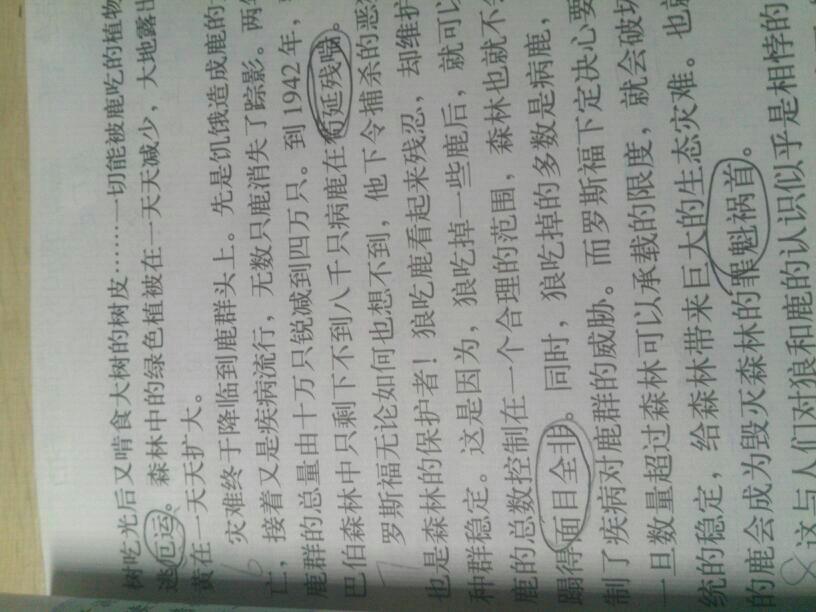 树吃光后又啃食大树的树皮……一切能被鹿吃的植物
逃厄运。森林中的绿色植被在一天天减少，大地露出
黄在一天天扩大。
6 灾难终于降临到鹿群头上。先是饥饿造成鹿的
亡，接着又是疾病流行，无数只鹿消失了踪影。两
鹿群的总量由十万只锐减到四万只。到1942年，
巴伯森林中只剩下不到八千只病鹿在苟延残喘。
7 罗斯福无论如何也想不到，他下令捕杀的恶
也是森林的保护者！狼吃鹿看起来残忍，却维护
种群稳定。这是因为，狼吃掉一些鹿后，就可以
鹿的总数控制在一个合理的范围，森林也就不会
蹋得面目全非。同时，狼吃掉的多数是病鹿，
制了疾病对鹿群的威胁。而罗斯福下定决心要
一旦数量超过森林可以承载的限度，就会破坏
统的稳定，给森林带来巨大的生态灾难。也就
的鹿会成为毁灭森林的罪魁祸首。
8 这与人们对狼和鹿的认识似乎是相悖的